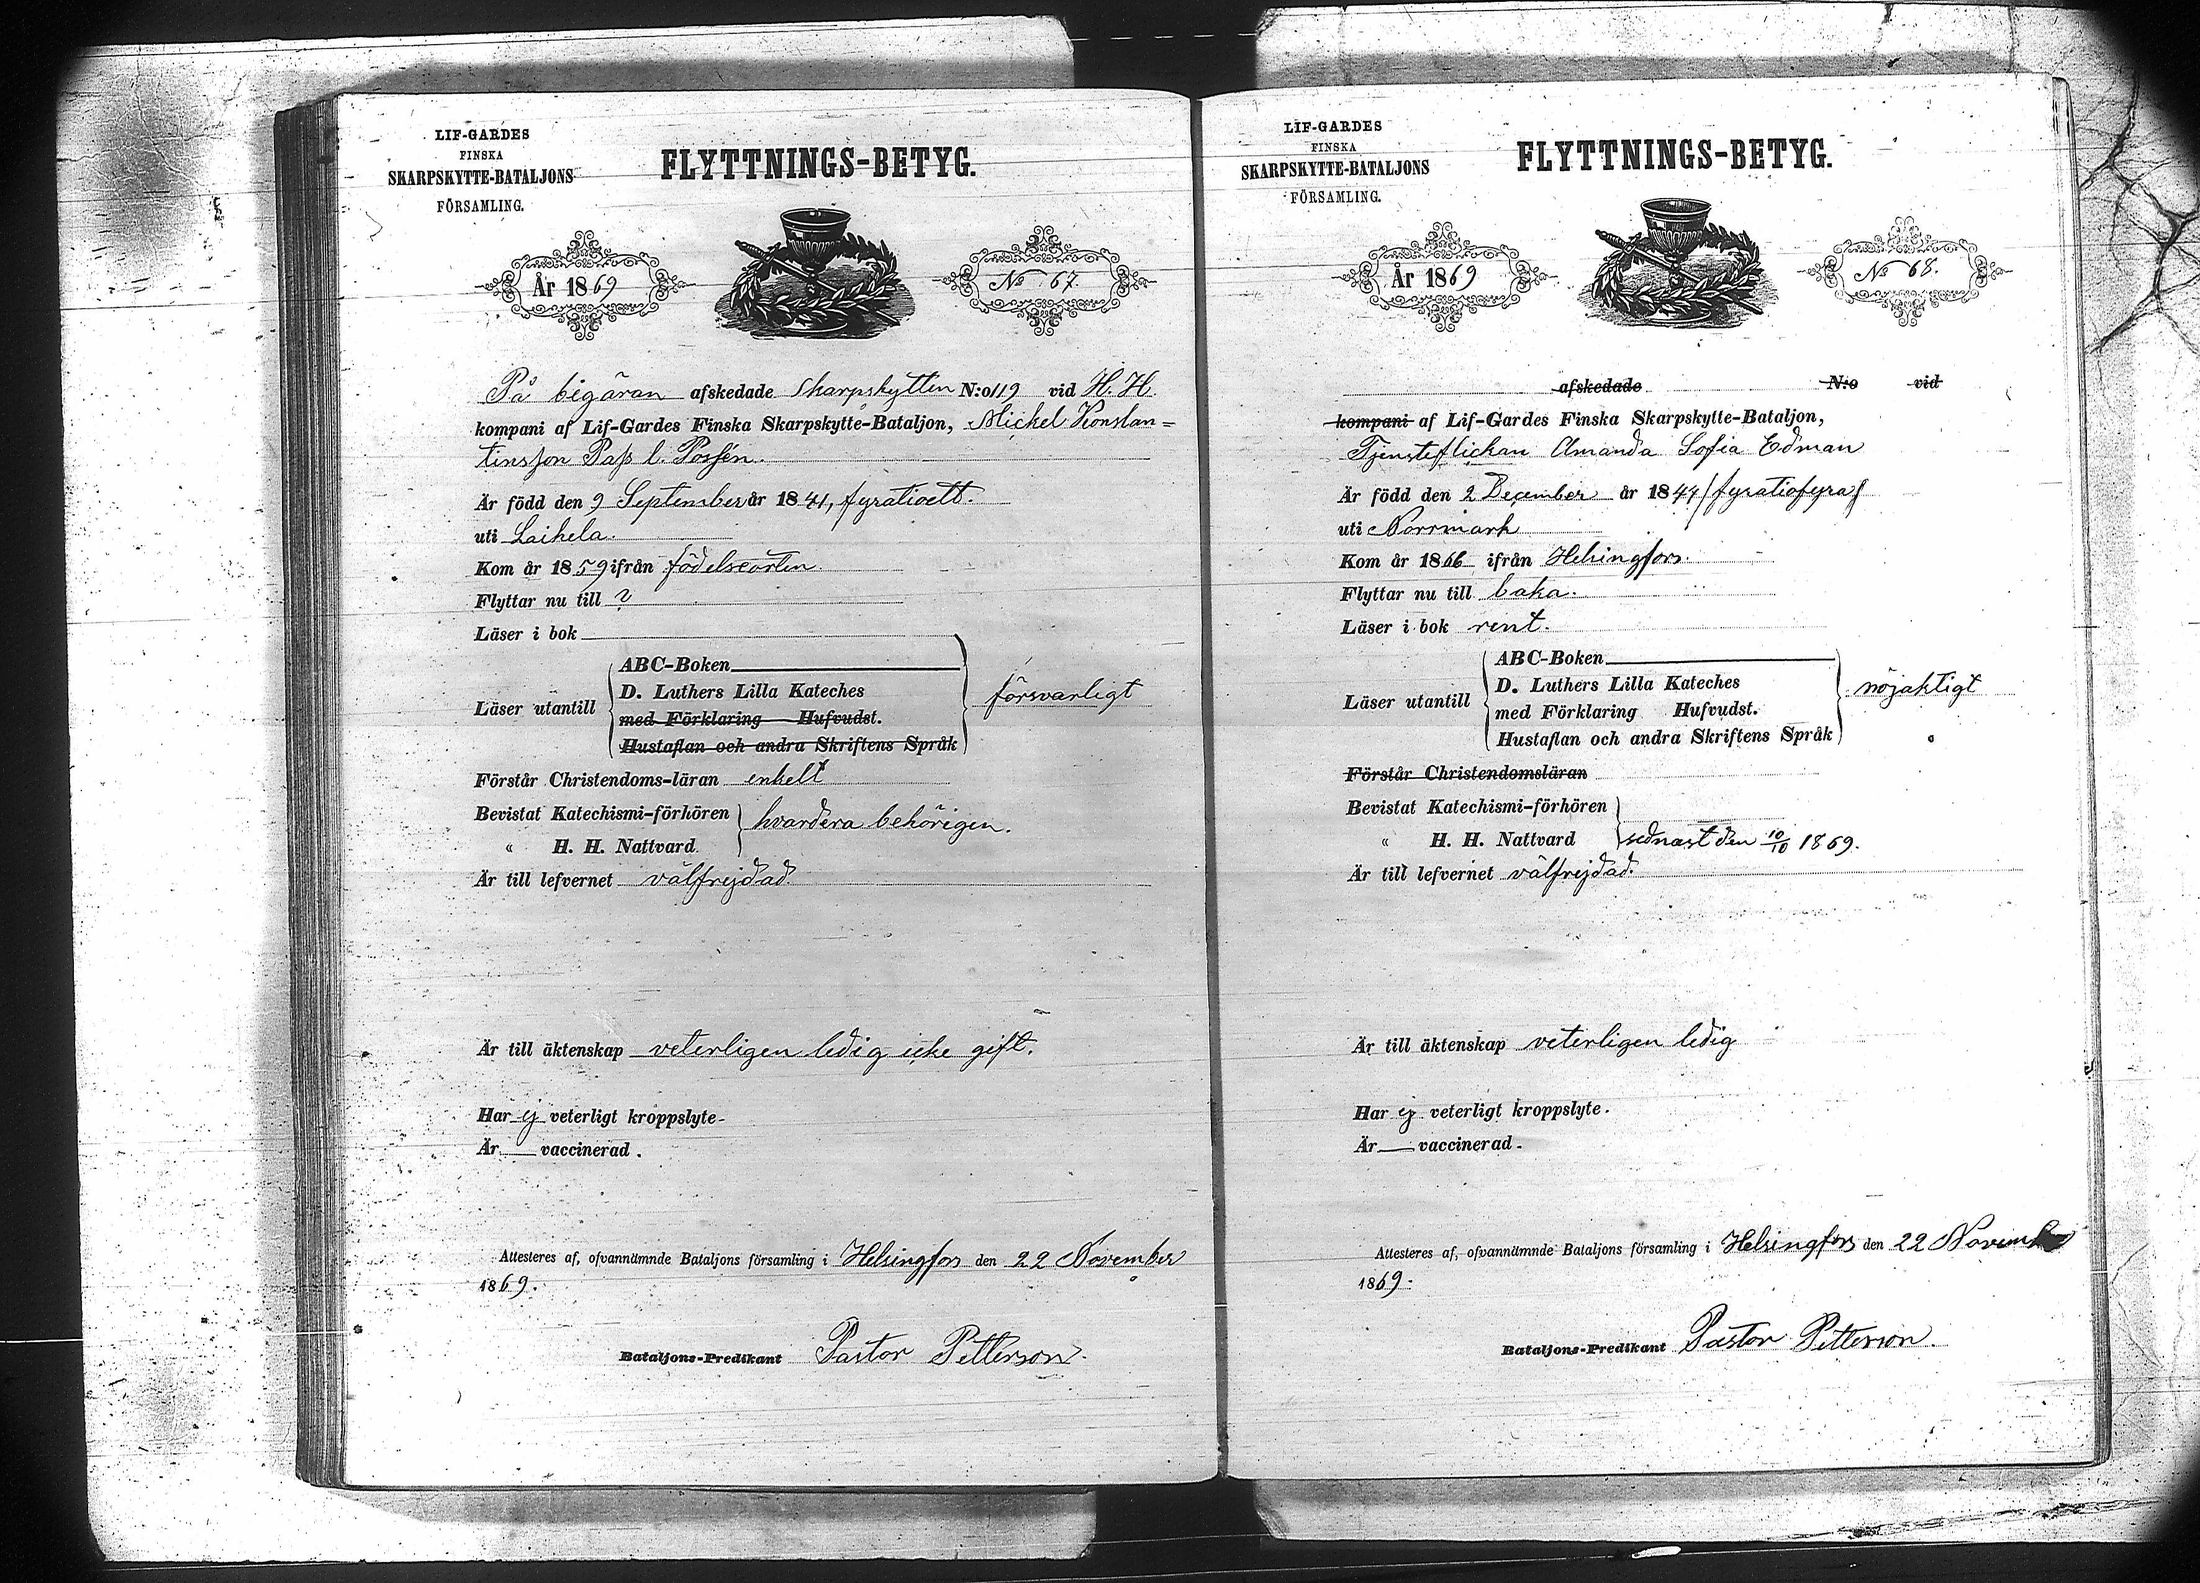 LIF-GARDES
FINSKA
SKARPSKYTTE-BATALJONS
FÖRSAMLING.
FLYTTNINGS-BETYG.
År 1869
No 67.
På begäran afskedade Skarpskytten N:o 119 vid H. H.
kompani af Lif-Gardes Finska Skarpskytte-Bataljon, Mickel Konstan=
tinsson Pass l. Possén.
Är född den 9 September år 1841, fyratioett.
uti Laihela.
Kom år 1859 ifrån födelseorten
Flyttar nu till ?
Läser i bok
ABC-Boken
D. Luthers Lilla Kateches
Läser utantill
försvarligt
med Förklaring Hufvudst.
Hustaflan och andra Skriftens Språk
Förstår Christendoms-läran enkelt
Bevistat Katechismi-förhören
hvardera behörigen.
" H. H. Nattvard
Är till lefvernet välfrejdad.
Är till äktenskap veterligen ledig icke gift.
Har ej veterligt kroppslyte-
Är vaccinerad.
Attesteres af, ofvannämnde Bataljons församling i Helsingfors den 22 November
1869.
Bataljons-Predikant Pastor Petterson.
LIF-GARDES
FINSKA
SKARPSKYTTE-BATALJONS
FÖRSAMLING.
FLYTTNINGS-BETYG.
År 1869
No 68.
afskedade N:o vid
kompani af Lif-Gardes Finska Skarpskytte-Bataljon,
Tjensteflickan Amanda Sofia Edman
Är född den 2 December år 1844 /fyratiofyra/
uti Norrmark
Kom år 1866 ifrån Helsingfors.
Flyttar nu till baka.
Läser i bok rent.
ABC-Boken
D. Luthers Lilla Kateches
Läser utantill
nöjaktigt
med Förklaring Hufvudst.
Hustaflan och andra Skriftens Språk
Förstår Christendomsläran
Bevistat Katechismi-förhören
" H. H. Nattvard sednast den 10/10 1869.
Är till lefvernet välfrejdad.
Är till äktenskap veterligen ledig
Har ej veterligt kroppslyte.
Är vaccinerad.
Attesteres af, ofvannämnde Bataljons församling i Helsingfors den 22 November
1869.
Bataljons-Predikant Pastor Petterson.